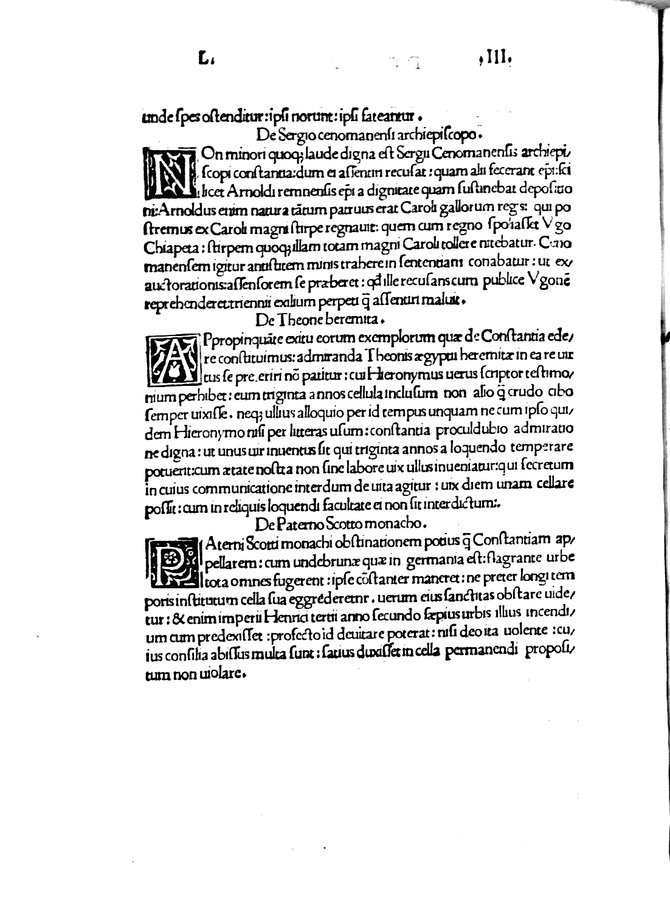 L. .III.
unde ſpes oſtenditur:ipſi norunt:ipſi fateantur.
De Sergio cenomanenſi archiepiſcopo.
NOn minori quoq; laude digna eſt Sergii Cenomanenſis archiepi/
ſcopi conſtantia:dum ei aſſentiri recuſat:quam alii fecerant ep̄i:ſci
licet Arnoldi remnenſis ep̄i a dignitate quam ſuſtinebat depoſitio
ni:Arnoldus enim natura tātum patruus erat Caroli gallorum regis: qui po
ſtremus ex Caroli magni ſtirpe regnauit: quem cum regno ſpoliaſſet Vgo
Chiapeta: ſtirpem quoq; illam totam magni Caroli tollere nitebatur. Ceno
manenſem igitur antiſtitem minis trahere in ſententiam conabatur: ut ex/
auctorationis:aſſenſorem ſe præberet: qđ ille recuſans cum publice Vgonē
reprehenderet:triennii exilium perpeti q̄ aſſentiri maluit.
De Theone heremita.
APpropinquāte exitu eorum exemplorum quæ de Conſtantia ede/
re conſtituimus: admiranda Theonis ægyptii heremitæ in ea re uir
tus ſe preteriri nō patitur: cui Hieronymus uerus ſcriptor teſtimo/
nium perhibet: eum triginta annos cellula incluſum non alio q̄ crudo cibo
ſemper uixiſſe. neq; ullius alloquio per id tempus unquam ne cum ipſo qui/
dem Hieronymo niſi per litteras uſum: conſtantia proculdubio admiratio
ne digna: ut unus uir inuentus ſit qui triginta annos a loquendo temperare
potuerit:cum ætate noſtra non ſine labore uix ullus inueniatur:qui ſecretum
in cuius communicatione interdum de uita agitur: uix diem unam cellare
poſſit: cum in reliquis loquendi facultate ei non ſit interdictum:.
De Paterno Scotto monacho.
PAterni Scotti monachi obſtinationem potius q̄ Conſtantiam ap/
pellarem: cum undebrunæ quæ in germania eſt: flagrante urbe
tota omnes fugerent: ipſe cōſtanter maneret: ne preter longi tem
poris inſtitutum cella ſua eggrederetur. uerum eius ſanctitas obſtare uide/
tur: & enim imperii Henrici tertii anno ſecundo ſæpius urbis illius incendi/
um cum predexiſſet: profecto id deuitare poterat: niſi deo ita uolente: cu/
ius conſilia abiſſus multa ſunt: ſatius duxiſſet in cella permanendi propoſi/
tum non uiolare.